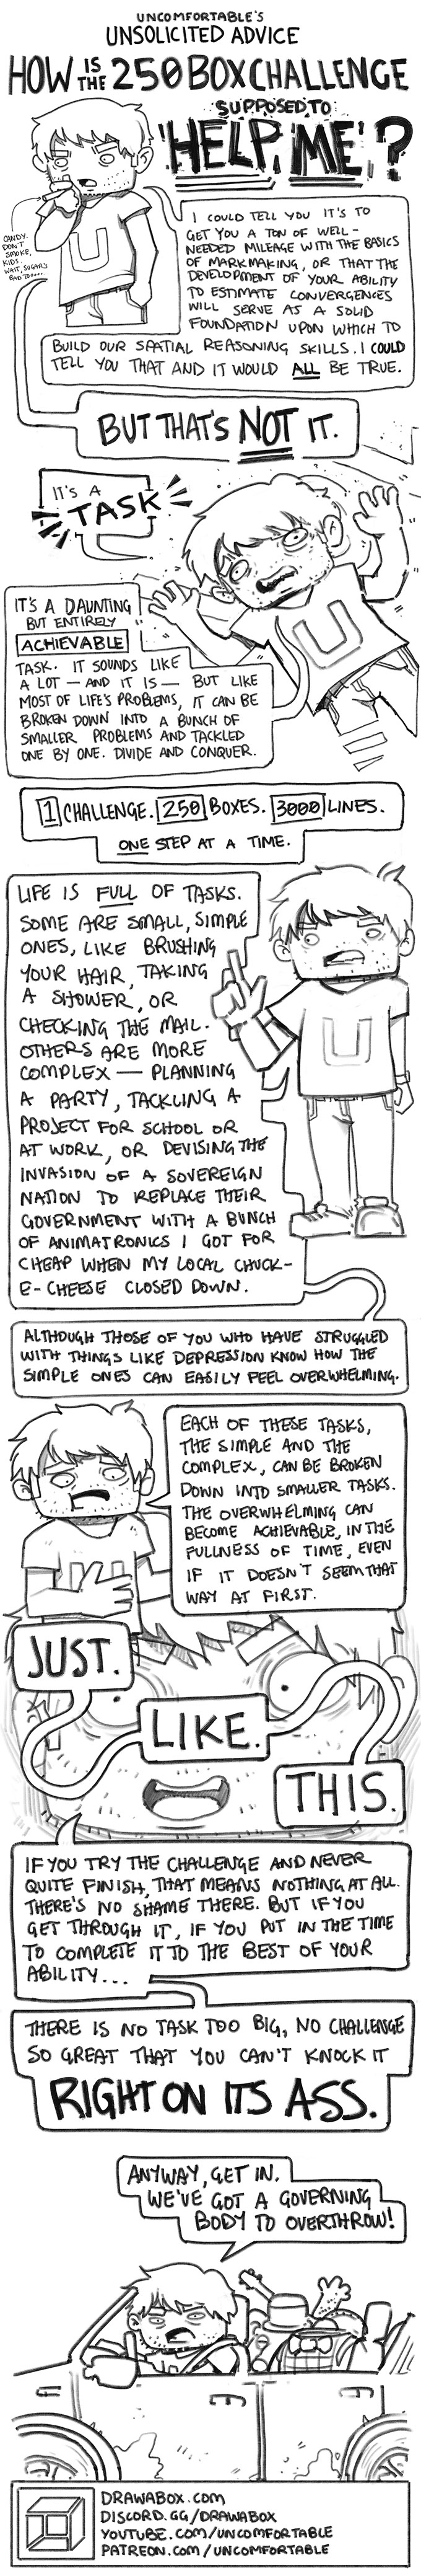 UNCOMFORTABLE'S
UNSOLICITED ADVICE
HOW IS THE 250 BOX CHALLENGE
SUPPOSED TO
HELP ME?
CANDY.
DON'T
SMOKE,
KIDS.
WAIT, SUGAR'S
BAD TOO...
U
I COULD TELL YOU IT'S TO
GET YOU A TON OF WELL-
NEEDED MILEAGE WITH THE BASICS
OF MARKMAKING, OR THAT THE
DEVELOPMENT OF YOUR ABILITY
TO ESTIMATE CONVERGENCES
WILL SERVE AS A SOLID
FOUNDATION UPON WHICH TO
BUILD OUR SPATIAL REASONING SKILLS. I COULD
TELL YOU THAT AND IT WOULD ALL BE TRUE.
BUT THAT'S NOT IT.
IT'S A
TASK
U
IT'S A DAUNTING
BUT ENTIRELY
ACHIEVABLE
TASK. IT SOUNDS LIKE
A LOT — AND IT IS — BUT LIKE
MOST OF LIFE'S PROBLEMS, IT CAN BE
BROKEN DOWN INTO A BUNCH OF
SMALLER PROBLEMS AND TACKLED
ONE BY ONE. DIVIDE AND CONQUER.
1 CHALLENGE. 250 BOXES. 3000 LINES.
ONE STEP AT A TIME.
LIFE IS FULL OF TASKS.
SOME ARE SMALL, SIMPLE
ONES, LIKE BRUSHING
YOUR HAIR, TAKING
A SHOWER, OR
CHECKING THE MAIL.
OTHERS ARE MORE
COMPLEX — PLANNING
A PARTY, TACKLING A
PROJECT FOR SCHOOL OR
AT WORK, OR DEVISING THE
INVASION OF A SOVEREIGN
NATION TO REPLACE THEIR
GOVERNMENT WITH A BUNCH
OF ANIMATRONICS I GOT FOR
CHEAP WHEN MY LOCAL CHUCK-
E-CHEESE CLOSED DOWN.
U
ALTHOUGH THOSE OF YOU WHO HAVE STRUGGLED
WITH THINGS LIKE DEPRESSION KNOW HOW THE
SIMPLE ONES CAN EASILY FEEL OVERWHELMING.
EACH OF THESE TASKS,
THE SIMPLE AND THE
COMPLEX, CAN BE BROKEN
DOWN INTO SMALLER TASKS.
THE OVERWHELMING CAN
BECOME ACHIEVABLE, IN THE
FULLNESS OF TIME, EVEN
IF IT DOESN'T SEEM THAT
WAY AT FIRST.
U
JUST.
LIKE.
THIS.
IF YOU TRY THE CHALLENGE AND NEVER
QUITE FINISH, THAT MEANS NOTHING AT ALL.
THERE'S NO SHAME THERE. BUT IF YOU
GET THROUGH IT, IF YOU PUT IN THE TIME
TO COMPLETE IT TO THE BEST OF YOUR
ABILITY...
THERE IS NO TASK TOO BIG, NO CHALLENGE
SO GREAT THAT YOU CAN'T KNOCK IT
RIGHT ON ITS ASS.
ANYWAY, GET IN.
WE'VE GOT A GOVERNING
BODY TO OVERTHROW!
DRAWABOX.COM
DISCORD.GG/DRAWABOX
YOUTUBE.COM/UNCOMFORTABLE
PATREON.COM/UNCOMFORTABLE